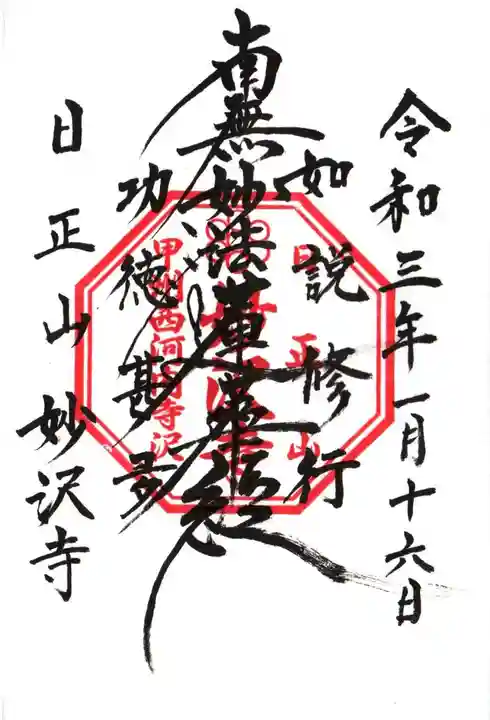 令和三年一月十六日
如説修行
南無妙法蓮華経
功徳甚多
日正山 妙沢寺
日正山
甲州西河内寺沢